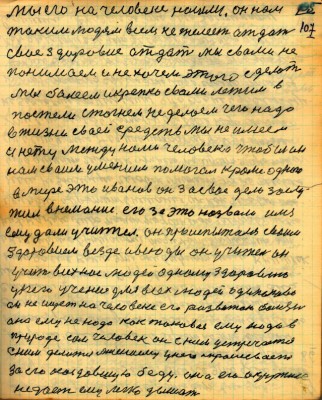 107
мы его на человеке нашли, он нам
таким людям всем желает отдат
свое здоровие отдат мы с вами не
понимаем и не хочем этого сделат
мы болеем и крепко с вами лежим в
постели стогнем не делаем чего надо
в жизни своей средств мы не имеем
и нету между нами человека чтобы он
нам своим умением помогал кроме одного
в мире это иванов он за свое дело заслу
жил внемание его за это назвали имя
ему дали учител. он прыписывал своим
здоровием везде и всюды он учител он
учит всих нас людей одному здоровию
у него учение для всех людей одинаково
он не ищет на человеке его развитою
оно ему не надо как таковое ему надо в
природе сам человек он с ним устречается
с ним делится у него спрашивает
за его находившую беду. она его окружает
недает ему легко дышат